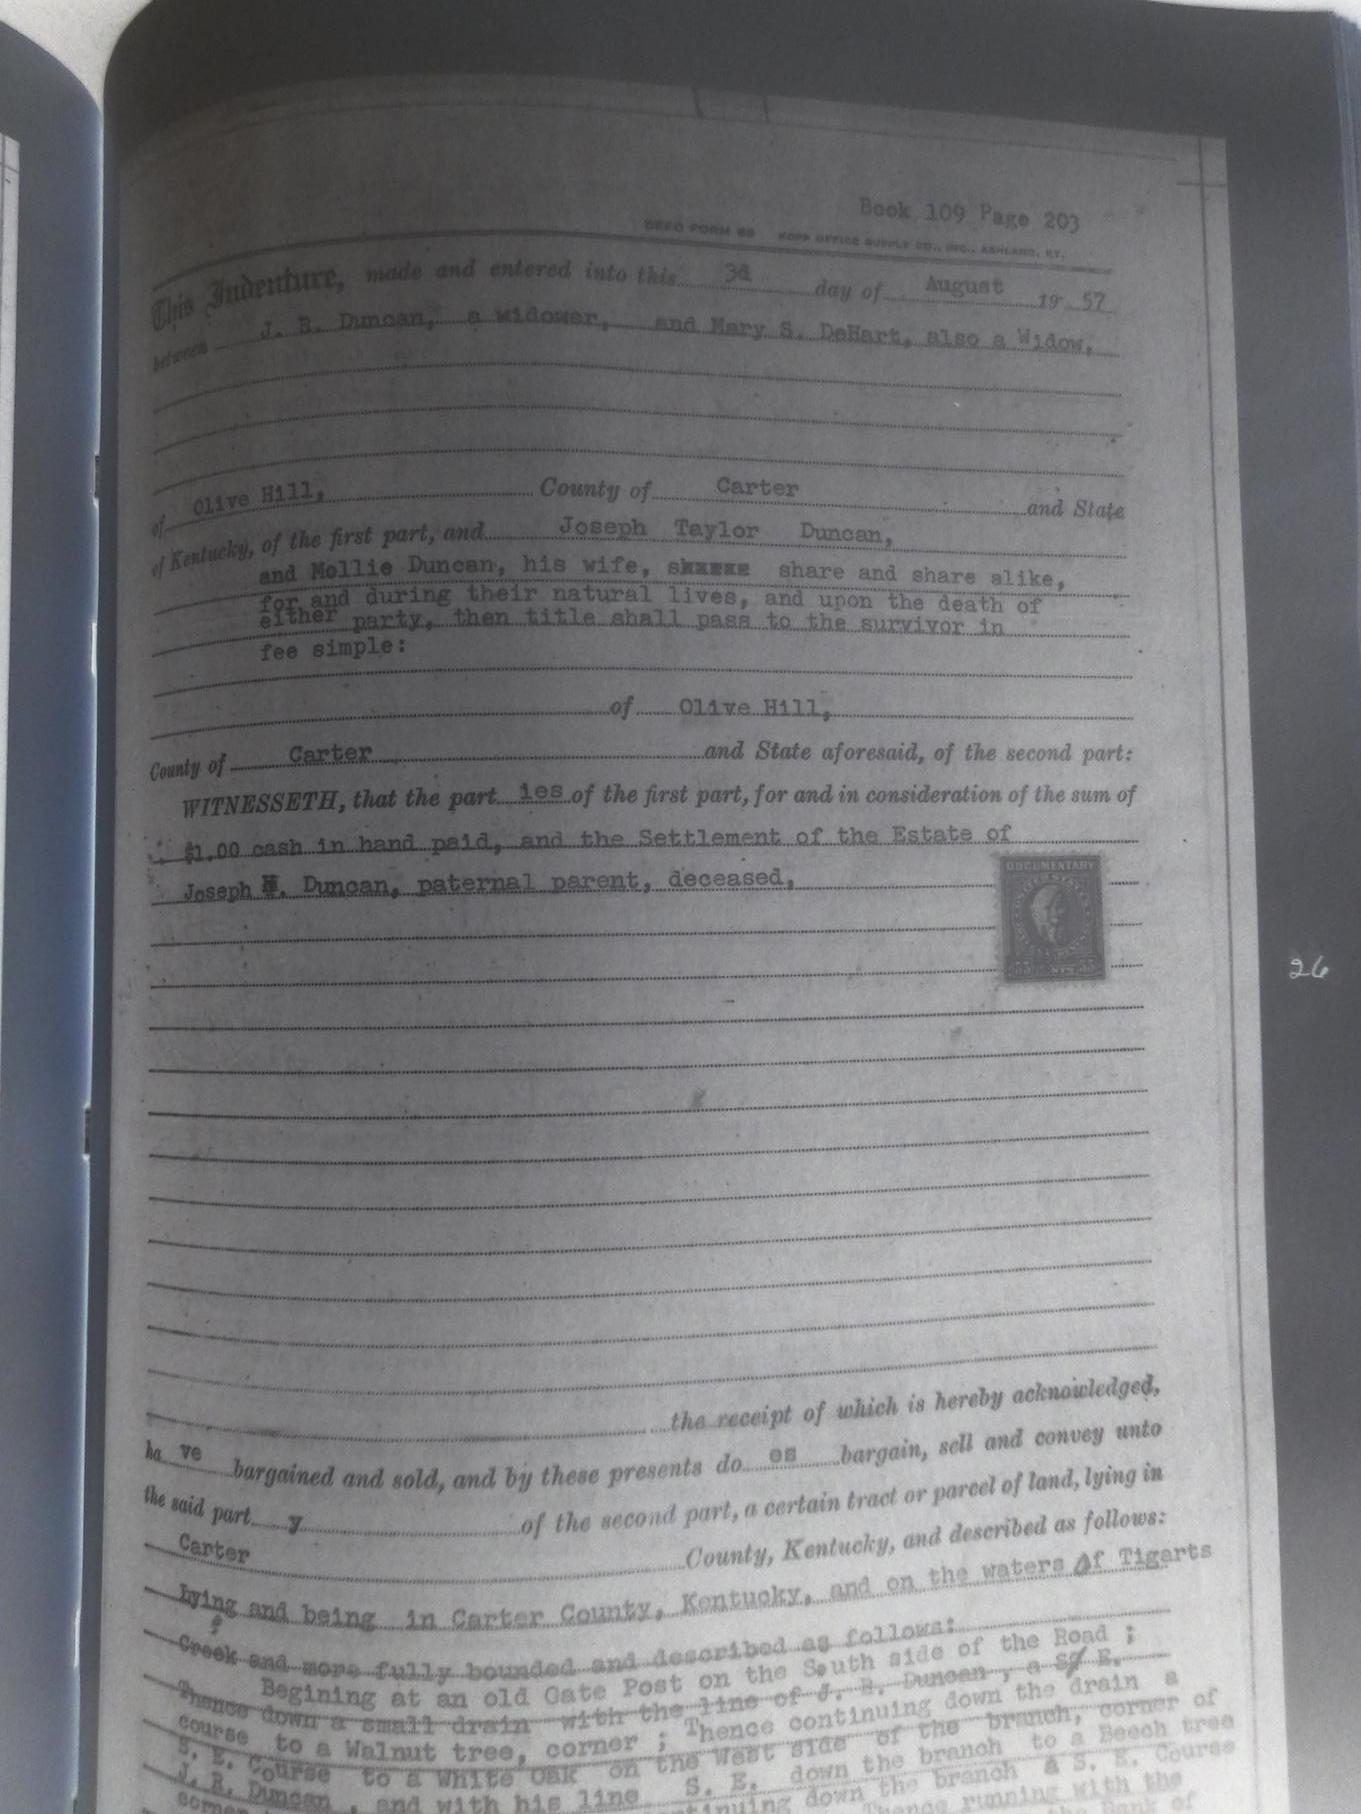 Book 109 Page 203
DEED FORM 69 KOPP OFFICE SUPPLY CO., INC., ASHLAND, KY.
This Indenture, made and entered into this 3d day of August 19 57
between J. R. Duncan, a widower, and Mary S. DeHart, also a Widow,
of Olive Hill, County of Carter and State
of Kentucky, of the first part, and Joseph Taylor Duncan,
and Mollie Duncan, his wife, share and share alike,
for and during their natural lives, and upon the death of
either party, then title shall pass to the survivor in
fee simple:
of Olive Hill,
County of Carter and State aforesaid, of the second part:
WITNESSETH, that the part ies of the first part, for and in consideration of the sum of
$1.00 cash in hand paid, and the Settlement of the Estate of
DOCUMENTARY
Joseph . Duncan, paternal parent, deceased,
26
the receipt of which is hereby acknowledged,
ha ve bargained and sold, and by these presents do es bargain, sell and convey unto
the said part y of the second part, a certain tract or parcel of land, lying in
Carter County, Kentucky, and described as follows:
Lying and being in Carter County, Kentucky, and on the waters of Tigarts
Creek and more fully bounded and described as follows:
Begining at an old Gate Post on the South side of the Road ;
Thence down a small drain with the line of J. R. Duncan , a S E.
course to a Walnut tree, corner ; Thence continuing down the drain a
S. E. Course to a White Oak on the West side of the branch, corner of
J. R. Duncan , and with his line S. E. down the branch to a Beech tree
down the branch & S. E. Course
Thence running with the
Bank of